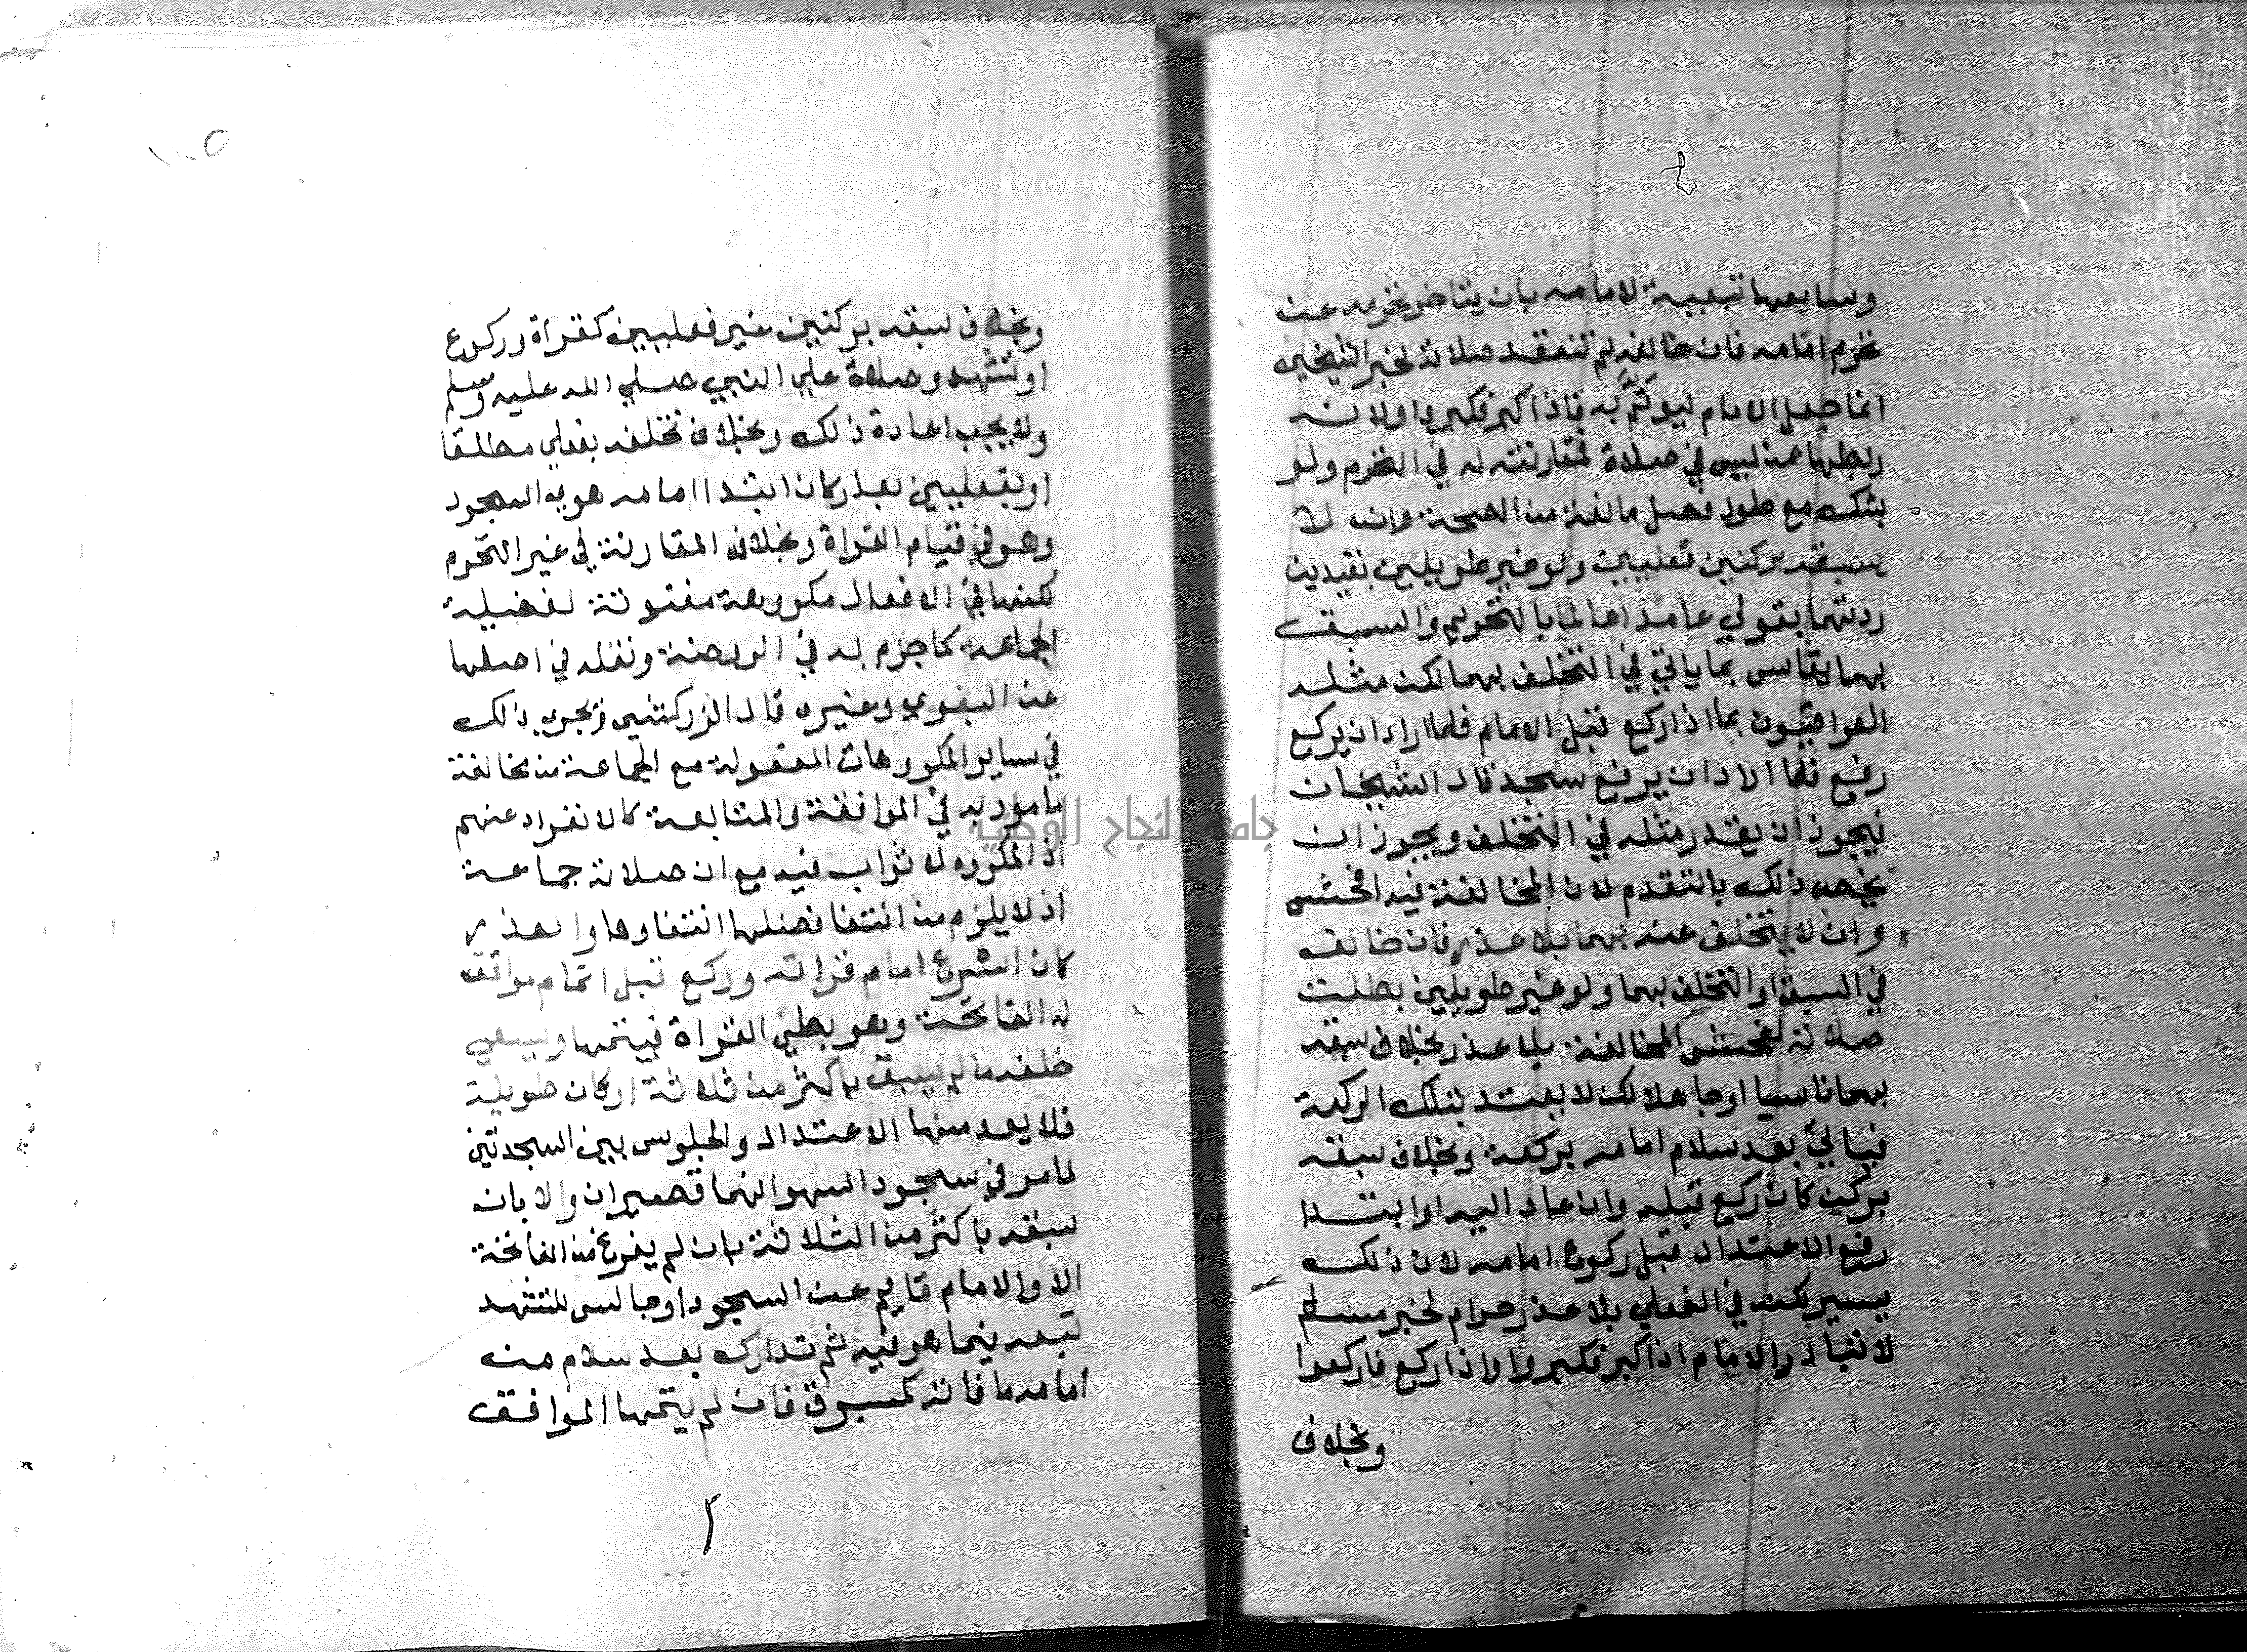 وسابعها تبعية لامامه بان يتاخر تحرمه عن
تحرم امامه فان خالفه لم تنعقد صلاته لخبر الشيخين
انما جعل الامام ليؤتم به فاذا كبر فكبروا ولانه
ربطها بمن ليس في صلاة لمقارنته له في التحرم ولو
بشك مع طول فصل مالفته من الصحة وان لا
يسبقه بركنين فعليين ولو غير طويلين بقيدين
زدتهما بقولي عامدا عالما بالتحريم والسبق
بهما يقاس بما ياتي في التخلف بهما لكن مثله
العراقيون بما اذا ركع قبل الامام فلما اراد ان يركع
رفع فلما اراد ان يرفع سجد قال الشيخان
فيجوز ان يقدر مثله في التخلف ويجوز ان
يخص ذلك بالتقدم لان المخالفة فيه افحش
وان لا يتخلف عنه بهما بلا عذر فان خالف
في السبق او التخلف بهما ولو غير طويلين بطلت
صلاته لفحش المخالفة بلا عذر بخلاف سبقه
بهما ناسيا او جاهلا لكن لا يعتد بتلك الركعة
فياتي بعد سلام امامه بركعة وبخلاف سبقه
بركن كان ركع قبله وان عاد اليه او ابتدا
رفع الاعتدال قبل ركوع امامه لان ذلك
يسير لكنه في الفعلي بلا عذر حرام لخبر مسلم
لا تبادروا الامام اذا كبر فكبروا واذا ركع فاركعوا
وبخلاف
وبخلاف سبقه بركنين غير فعليين كقراة وركوع
او تشهد وصلاة علي النبي صلي الله عليه وسلم
ولا يجب اعادة ذلك وبخلاف تخلفه بفعلي مطلقا
او بفعليين بعذر كان ابتدا امامه هوي السجود
وهو في قيام القراة وبخلاف المقارنة في غير التحرم
لكنها في الافعال مكروهة مفوتة لفضيلة
الجماعة كما جزم به في الروضة ونقله في اصلها
عن البغوي وغيره قال الزركشي ويجري ذلك
في ساير المكروهات المفعولة مع الجماعة من مخالفة
مامور به في الموافقة والمتابعة كالانفراد عنهم
اذ المكروه لا ثواب فيه مع ان صلاته جماعة
اذ لا يلزم من انتفا فضلها انتفاوها والعذر
كان اسرع امام قراته وركع قبل اتمام موافق
له الفاتحة وهو بطي القراة فيتمها ويسعي
خلفه ما لم يسبق باكثر من ثلاثة اركان طويلة
فلا يعد منها الاعتدال والجلوس بين السجدتين
لما مر في سجود السهو انهما قصيران والا بان
سبقه باكثر من الثلاثة بان لم يفرغ من الفاتحة
الا والامام قايم عن السجود او جالس للتشهد
تبعه فيما هو فيه ثم تدارك بعد سلام من
امامه ما فاته كمسبوق فان لم يتمها الموافق
جامعة النجاح الوطنية